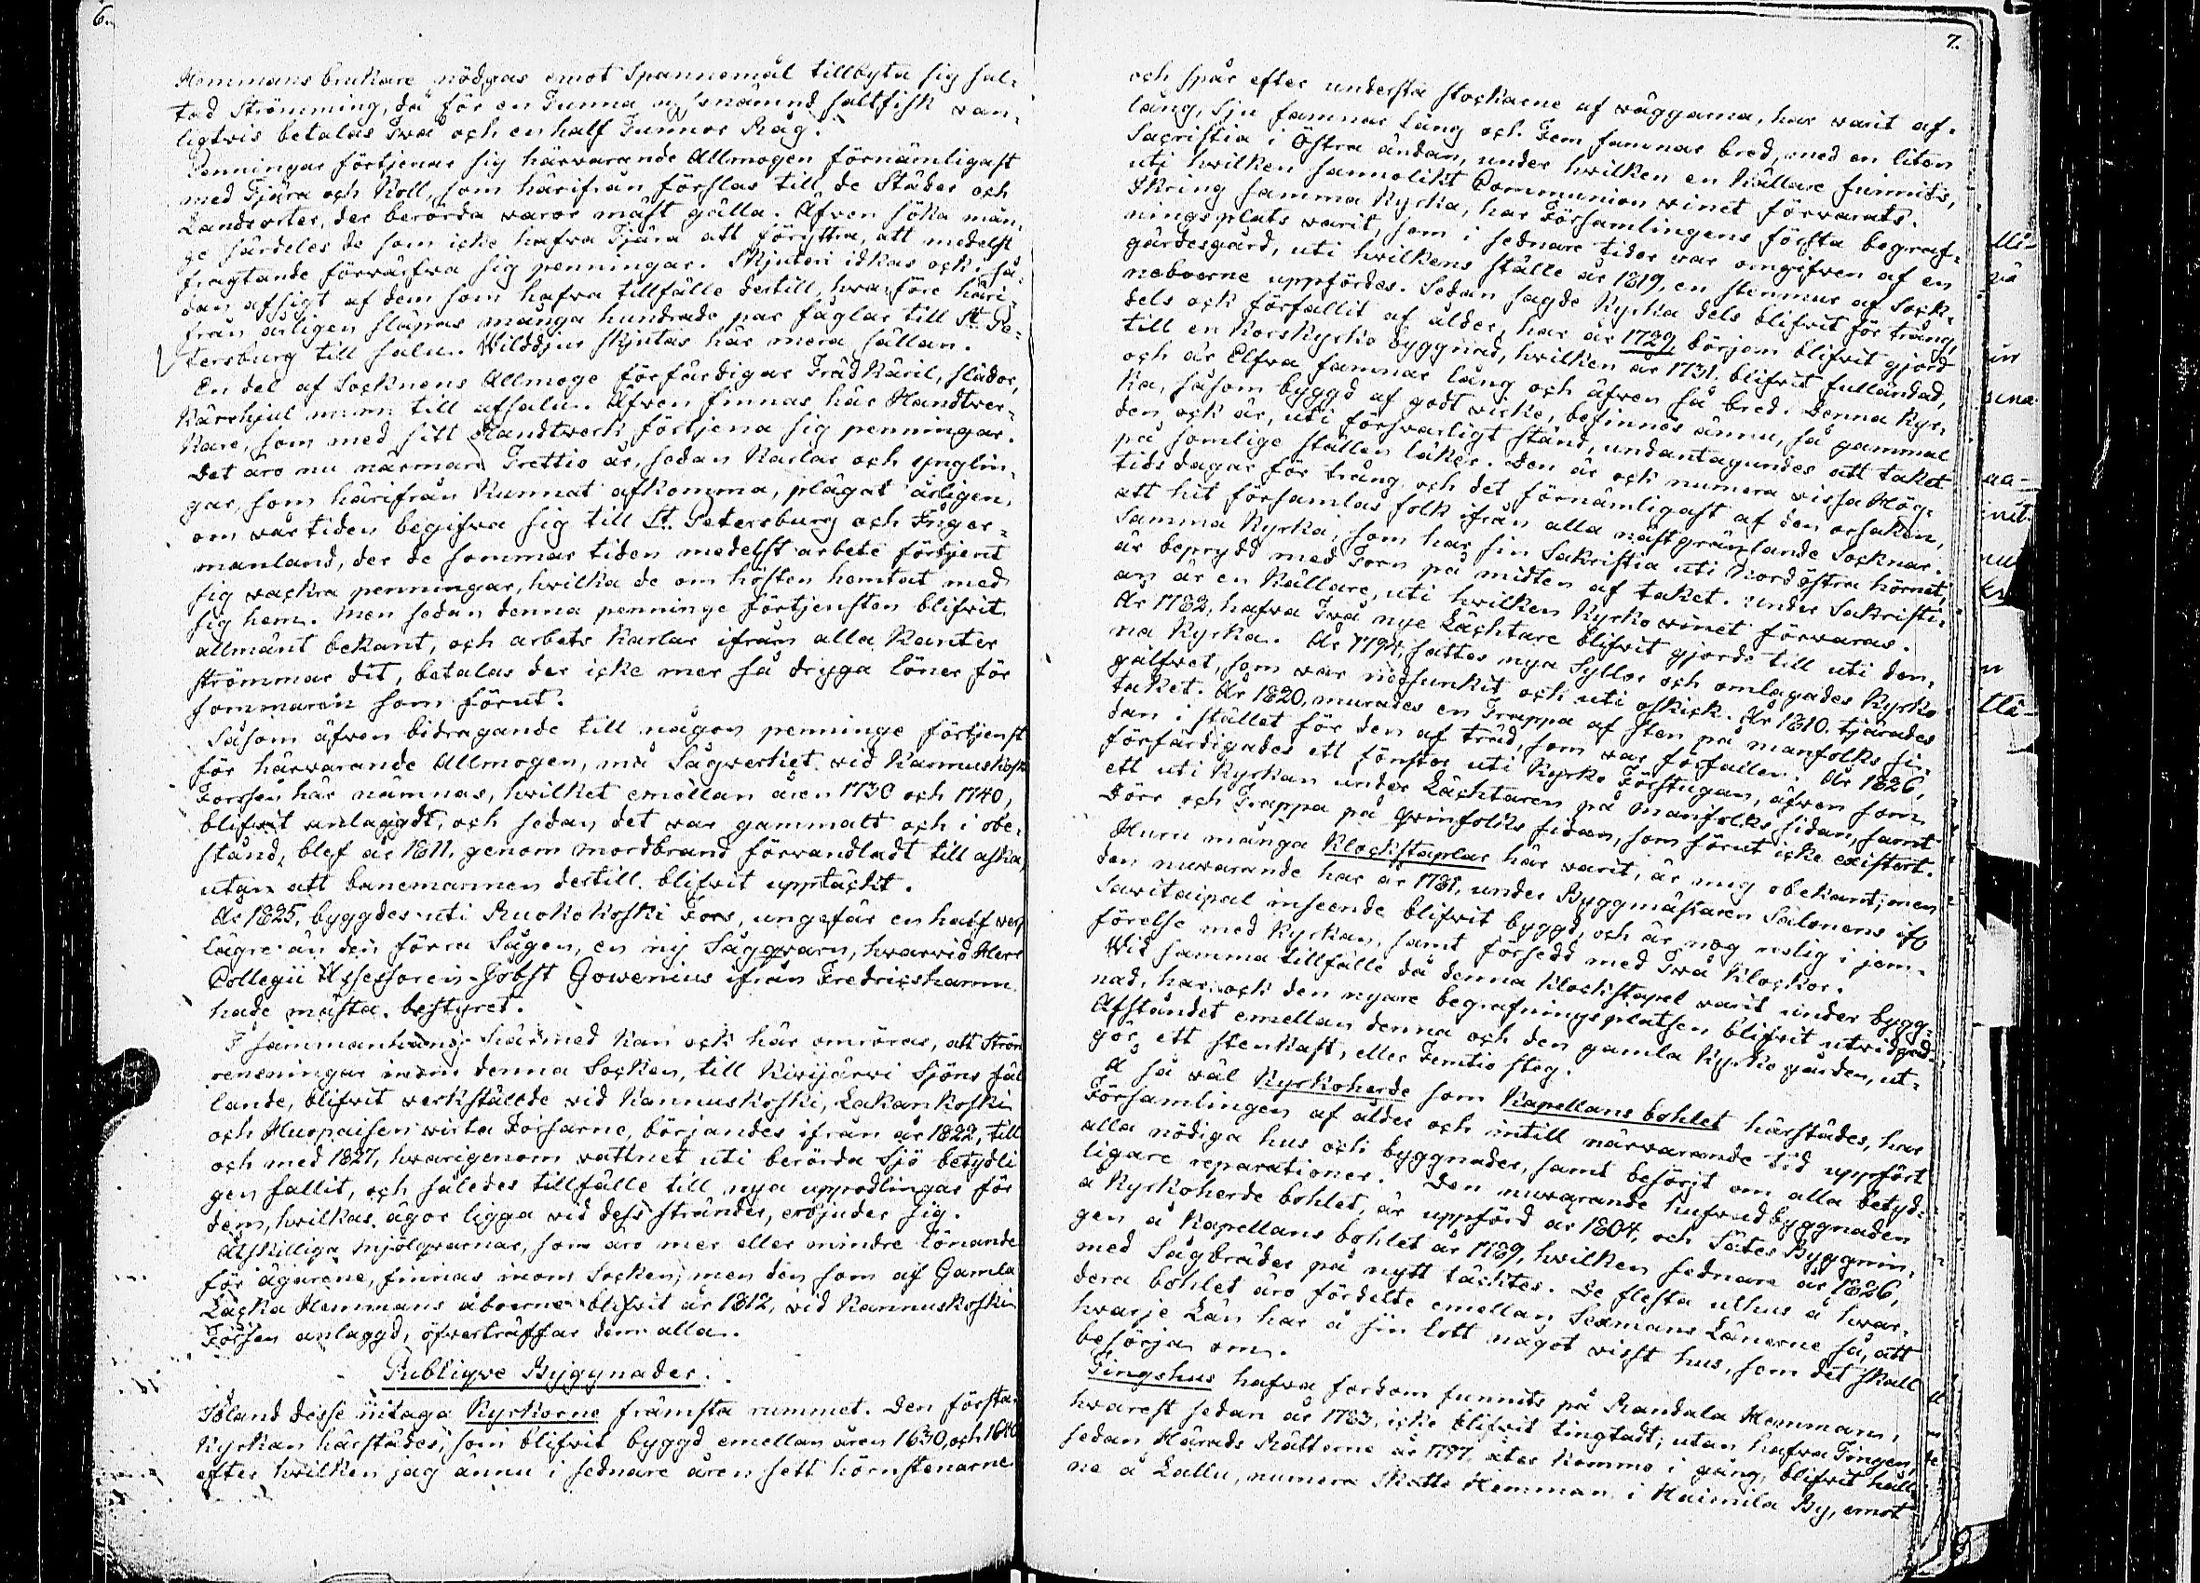 6.
Hemmans brukare nödgas emot Spannemål tillbyta sig sal-
tad Strömming, då för en Tunna nyssnämnd saltfisk van-
ligtvis betalas Två och en half Tunnor Råg.
Penningar förtjenar sig härvarande Allmogen förnämligast
med Tjära och Koll, som härifrån förslas till de Städer och
Landsorter, der berörda varor mäst gälla. Äfven söka mån-
ge särdeles de som icke hafva Tjära att föryttra, att medelst
fragtande förvärfva sig penningar. Skjuteri idkas ock i så-
dan afsigt af dem som hafva tillfälle dertill, hvarföre häri-
från årligen släpas många hundrade par fåglar till St. Pe-
tersburg till salu. Willdjur skjutas här mera sällan.
En del af Socknens Allmoge förfärdigar Trädkäril, slädor,
Kärrhjul m.m. till afsalu. Äfven finnas här Handtver-
kare, som med sitt Handtverk förtjena sig penningar.
Det äro nu närmare Trettio år, sedan Karlar och ynglin-
gar, som härifrån kunnat afkomma, plägat årligen,
om vårtiden begifva sig till St. Petersburg och Inger-
manland, der de sommartiden medelst arbete förtjent
sig vackra penningar, hvilka de om hösten hemtat med
sig hem. Men sedan denna penninge förtjensten blifvit
allmänt bekant, och arbets Karlar ifrån alla Kanter
strömmar dit, betalas der icke mer så dryga löner för
sommaren som förut.
Såsom äfven bidragande till någon penninge förtjenst
för härvarande Allmogen, må Sågverket vid Kannuskoski
Forssen här nämnas, hvilket emellan åren 1730 och 1740,
blifvit anlaggdt, och sedan det var gammalt och i obe-
stånd, blef år 1811, genom mordbrand förvandladt till aska,
utan att banemannen dertill blifvit upptäckt.
År 1825, byggdes uti Ruokokoski Fors, ungefär en half verst
lägre än den förra Sågen, en ny Såggvarn, hvarvid Herr
Collegii Assessoren Jobst Gowenius ifrån Fredricshamn
hade mästa bestyret.
I sammanhang härmed kan ock här omröras, att Ström
rensningar inom denna Socken, till Kivijärvi Sjöns fäl
lande, blifvit verkställde vid Kannuskoski, Lakankoski
och Hurpaisen virta Forsarne, börjandes ifrån år 1822, till
och med 1827, hvarigenom vattnet uti berörda Sjö betydli
gen fallit, och således tillfälle till nya uppodlingar för
dem, hvilkas ägor ligga vid dess stränder, erbjuder sig.
Åtskilliga mjölqvarnar, som äro mer eller mindre lönande
för ägarene, finnas inom Socken, men den som af Gamla
Läska Hemmans åboerne blifvit år 1812, vid Kannuskoski
Forsen anlaggd, öfverträffar dem alla.
Publiqve Byggnader.
Ibland desse intaga Kyrkorne främsta rummet. Den första
Kyrkan härstädes, som blifvit byggd emellan åren 1630, och 1640
efter hvilken jag ännu i sednare åren sett hörnstenarne
7.
och spår efter understa stockarne af väggarna, har varit af-
lång, Sju famnar Lång och Fem famnar bred, med en liten
Sacristia i Östra ändan, under hvilken en Källare funnits,
uti hvilken sannolikt Communion vinet förvarats.
Ikring samma Kyrka, har Församlingens första begraf-
ningsplats varit, som i sednare tider var omgifven af en
gärdesgård, uti hvilkens ställe år 1819, en stenmur af Sock-
neboerne uppfördes. Sedan sagde Kyrka dels blifvit för trång,
dels ock förfallit af ålder, har år 1729, början blifvit gjord
till en Korskyrko byggnad, hvilken år 1731, blifvit fulländad,
och är Elfva famnar lång och äfven så bred. Denna Kyr-
ka, såsom byggd af godt virke, befinnes ännu, så gammal
den ock är, uti försvarligt stånd, undantagandes att taket
på somlige ställen läker. Den är ock numera vissa Hög-
tidsdagar för trång och det förnämligast af den orsaken,
att hit församlas folk ifrån alla nästgränsande Socknar.
Samma Kyrka, som har sin Sakristia uti Nordöstra hörnet,
är beprydd med Torn på midten af taket. Under Sakristi-
an är en Källare, uti hvilken Kyrko vinet förvaras.
År 1782, hafva Två nye Läcktare blifvit gjorde till uti den-
na Kyrka. År 1794, sattes nya Syllor och omlagades Kyrko
gålfvet, som var nedsunkit och uti oskick. År 1810, tjärades
taket. År 1820, murades en Trappa af sten på manfolks si-
dan i stället för den af träd, som var förfallen. År 1826,
förfärdigades ett fönster uti Kyrko Förstugan, äfven som
ett uti Kyrkan under Läcktaren på Manfolks sidan, samt
Dörr och Trappa på Qvinfolks sidan, som förut icke existert.
Huru många Klockstaplar här varit, är mig obekant; men
den nuvarande har år 1781, under Byggmästaren Salonens ifr
Savitaipal inseende blifvit byggd, och är nog reslig i jem-
förelse med Kyrkan, samt försedd med Två Klockor.
Wid samma tillfälle då denna Klockstapel varit under bygg-
nad, har ock den nyare begrafningsplatsen blifvit utvidgad.
Afståndet emellan denna och den gamla Kyrkogården, ut-
gör ett stenkast, eller Femtio steg.
Å så väl Kyrkoherde som Kapellans bohlet härstädes, har
Församlingen af ålder och intill närvarande tid uppfört
alla nödiga hus och byggnader, samt besörjt om alla betyd-
ligare reparationer. Den nuvarande hufvudbyggnaden
å Kyrkoherde bohlet, är uppförd år 1804, och Sätes Byggnin-
gen å Kapellans bohlet år 1789, hvilken sednare år 1826,
med Sågbräder på nytt täcktes. De flesta uthus å hvar-
dera bohlet äro fördelte emellan Sexmans Länerne så, att
hvarje Län har å sin lott något visst hus, som det skall
besörja om.
Tingshus hafva fordom funnits på Randala Hemman,
hvarest sedan år 1783, icke blifvit tingtadt; utan hafva Tingen,
sedan Härads Rätterne år 1797, åter kommo i gång, blifvit håll
ne å Lallu, numera Skatte Hemman i Heimila By, emot